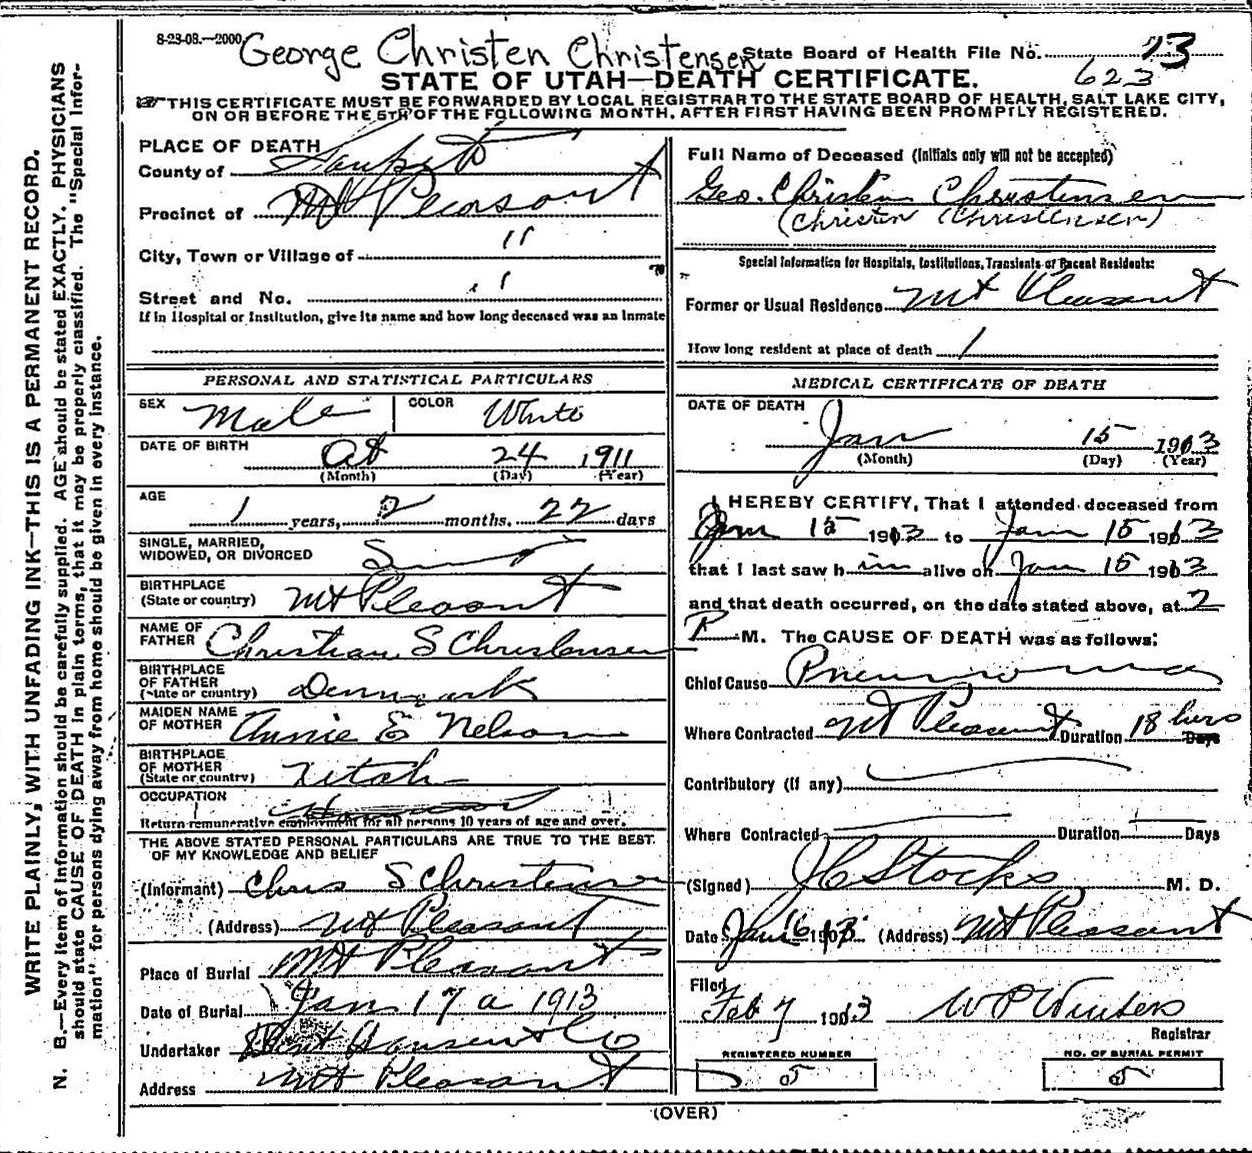 8-23-08.—2000.
George Christen Christensen
State Board of Health File No. 13
623
STATE OF UTAH—DEATH CERTIFICATE.
THIS CERTIFICATE MUST BE FORWARDED BY LOCAL REGISTRAR TO THE STATE BOARD OF HEALTH, SALT LAKE CITY,
ON OR BEFORE THE 5TH OF THE FOLLOWING MONTH, AFTER FIRST HAVING BEEN PROMPTLY REGISTERED.
WRITE PLAINLY, WITH UNFADING INK—THIS IS A PERMANENT RECORD.
N. B.—Every item of Information should be carefully supplied. AGE should be stated EXACTLY. PHYSICIANS
should state CAUSE OF DEATH in plain terms, that it may be properly classified. The "Special Infor-
mation" for persons dying away from home should be given in every instance.
PLACE OF DEATH
County of Sanpete
Precinct of Mt Pleasant
City, Town or Village of "
Street and No. "
If in Hospital or Institution, give its name and how long deceased was an Inmate
Full Name of Deceased (Initials only will not be accepted)
Geo. Christen Christensen
(Christen Christensen)
Special Information for Hospitals, Institutions, Transients or Recent Residents:
Former or Usual Residence Mt Pleasant
How long resident at place of death 1
PERSONAL AND STATISTICAL PARTICULARS
SEX Male COLOR White
DATE OF BIRTH Oct 24 1911
(Month) (Day) (Year)
AGE
1 years, 2 months. 22 days
SINGLE, MARRIED,
WIDOWED, OR DIVORCED S
BIRTHPLACE
(State or country) Mt Pleasant
NAME OF
FATHER Christian S Christensen
BIRTHPLACE
OF FATHER
(State or country) Denmark
MAIDEN NAME
OF MOTHER Annie E Nelson
BIRTHPLACE
OF MOTHER
(State or country) Utah
OCCUPATION
Return remunerative employment for all persons 10 years of age and over.
THE ABOVE STATED PERSONAL PARTICULARS ARE TRUE TO THE BEST
OF MY KNOWLEDGE AND BELIEF
(Informant) Chris S Christensen
(Address) Mt Pleasant
Place of Burial Mt Pleasant
Date of Burial Jan 17 1913
Undertaker Hansen & Co
Address Mt Pleasant
MEDICAL CERTIFICATE OF DEATH
DATE OF DEATH
Jan 15 1913
(Month) (Day) (Year)
I HEREBY CERTIFY, That I attended deceased from
Jan 15 1913 to Jan 15 1913
that I last saw h im alive on Jan 15 1913
and that death occurred, on the date stated above, at 2
P M. The CAUSE OF DEATH was as follows:
Chief Cause Pneumonia
Where Contracted Mt Pleasant Duration 18 hurs Days
Contributory (if any)
Where Contracted Duration Days
(Signed) J C Stocks M. D.
Date Jan 16 1913 (Address) Mt Pleasant
Filed
Feb 7 1913 W P Winters
Registrar
REGISTERED NUMBER
5
NO. OF BURIAL PERMIT
5
(OVER)